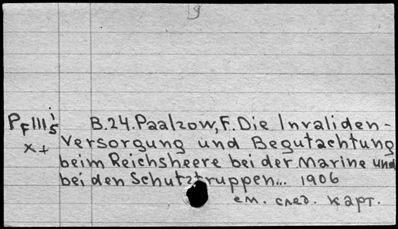 PfIII i/5 B.24. Paalzow, F. Die Invaliden-
x+ Versorgung und Begutachtung
beim Reichsheere bei der Marine und
bei den Schutztruppen... 1906
см. след. карт.